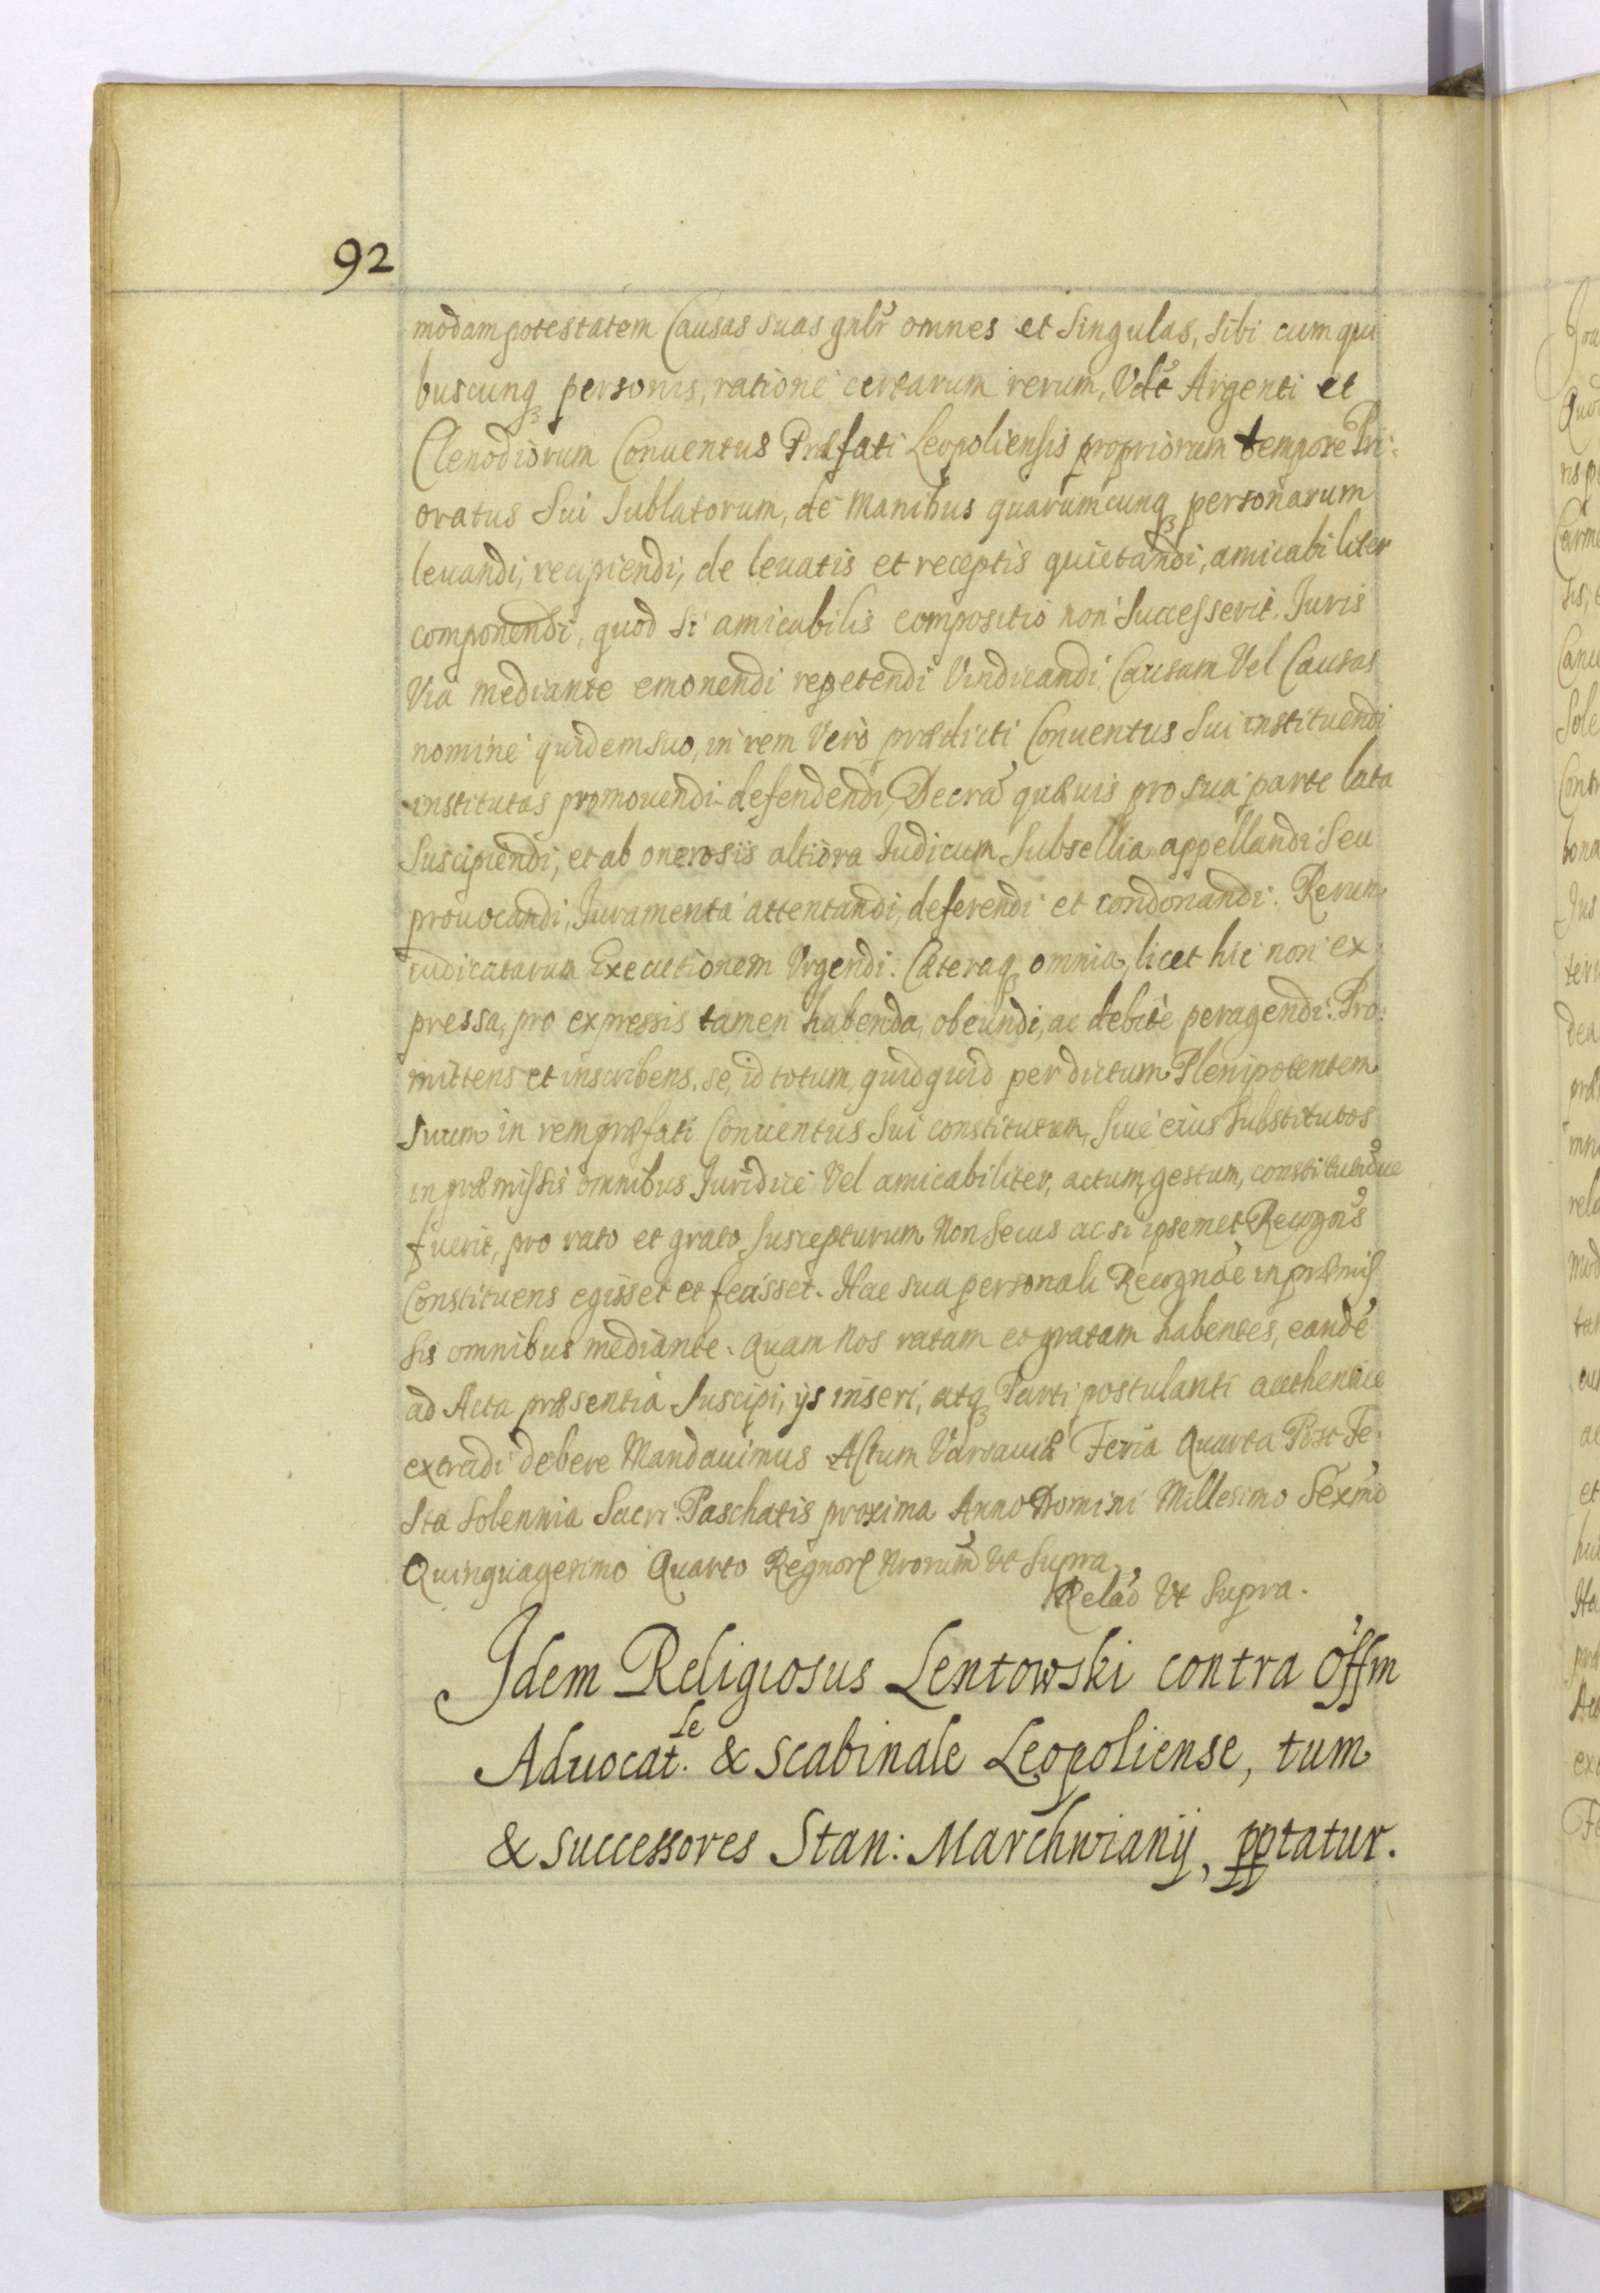 92
modam potestatem Causas suas gnlr omnes et singulas, sibi cum qui
buscunq personis, ratione certarum rerum, Vdlt Argenti et
Clenodiorum Conuentus Præfati Leopoliensis propriorum tempore Pri:
oratus Sui sublatorum, de Manibus quarumcunq personarum
leuandi, recipiendi, de leuatis et receptis quietandi, amicabiliter
componendi, quod si amicabilis compositio non Successerit. Juris
Via mediante emonendi repetendi Vindicandi Causam Vel Causas
nomine quidem suo, in rem Vero prædicti Conuentus Sui instituendi
institutas promouendi defendendi, Decra quæuis pro sua parte lata
Suscipiendi, et ab onerosis altiora Judicum Subsellia appellandi Seu
prouocandi, Juramenta attentandi, deferendi et condonandi. Rerum
iudicatarum Executionem Vrgendi. Cæteraq omnia, licet hic non ex
pressa, pro expressis tamen habenda, obeundi, ac debite peragendi: Pro:
mittens et inscribens, se, id totum, quidquid per dictum Plenipotentem
Suum in rem præfati Conuentus Sui constitutum, siue eius Substitutos
in præmissis omnibus Juridice Vel amicabiliter, actum, gestum,
fuerit, pro rato et grato suscepturum Non secus ac si ipsemet Recogns
Constituens egisset et fecisset. Hac sua personali Recognoe in præmis
sis omnibus mediante. Quam Nos ratam et gratam habentes, eande
ad Acta præsentia Suscipi, ijs inseri, atq Parti postulanti authentice
extradi debere Mandauimus Actum Varsauiæ Feria Quarta Post Fe
sta Solennia Sacri Paschatis proxima Anno Domini Millesimo Sexmo
Quinquagesimo Quarto Regnor Nrorum Vt Supra
Relao Vt Supra.
Idem Religiosus Lentowski contra Offm
Aduocat.le & Scabinale Leopoliense, tum
& successores Stan: Marchwianij, pptatur.